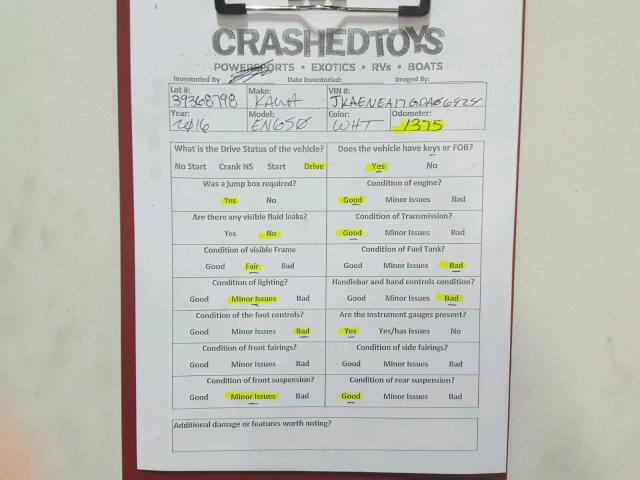 CRASHEDTOYS
POWERSPORTS • EXOTICS • RVs • BOATS
Inventoried By Date Inventoried: Imaged By:
Lot #: Make: VIN #:
39368798 KAWA JKAENEA17GDA
Year: Model: Color: Odometer:
2016 EN650 WHT 1375
What is the Drive Status of the vehicle? Does the vehicle have keys or FOB?
No Start Crank NS Start Drive Yes No
Was a jump box required? Condition of engine?
Yes No Good Minor Issues Bad
Are there any visible fluid leaks? Condition of Transmission?
Yes No Good Minor Issues Bad
Condition of visible Frame Condition of Fuel Tank?
Good Fair Bad Good Minor Issues Bad
Condition of lighting? Handlebar and hand controls condition?
Good Minor Issues Bad Good Minor Issues Bad
Condition of the foot controls? Are the instrument gauges present?
Good Minor Issues Bad Yes Yes/has issues No
Condition of front fairings? Condition of side fairings?
Good Minor Issues Bad Good Minor Issues Bad
Condition of front suspension? Condition of rear suspension?
Good Minor Issues Bad Good Minor Issues Bad
Additional damage or features worth noting?